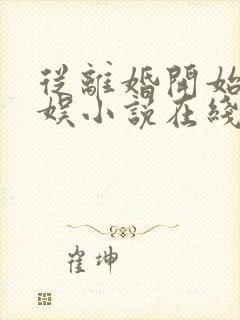 從離婚開始
娛小說在綫
崔坤